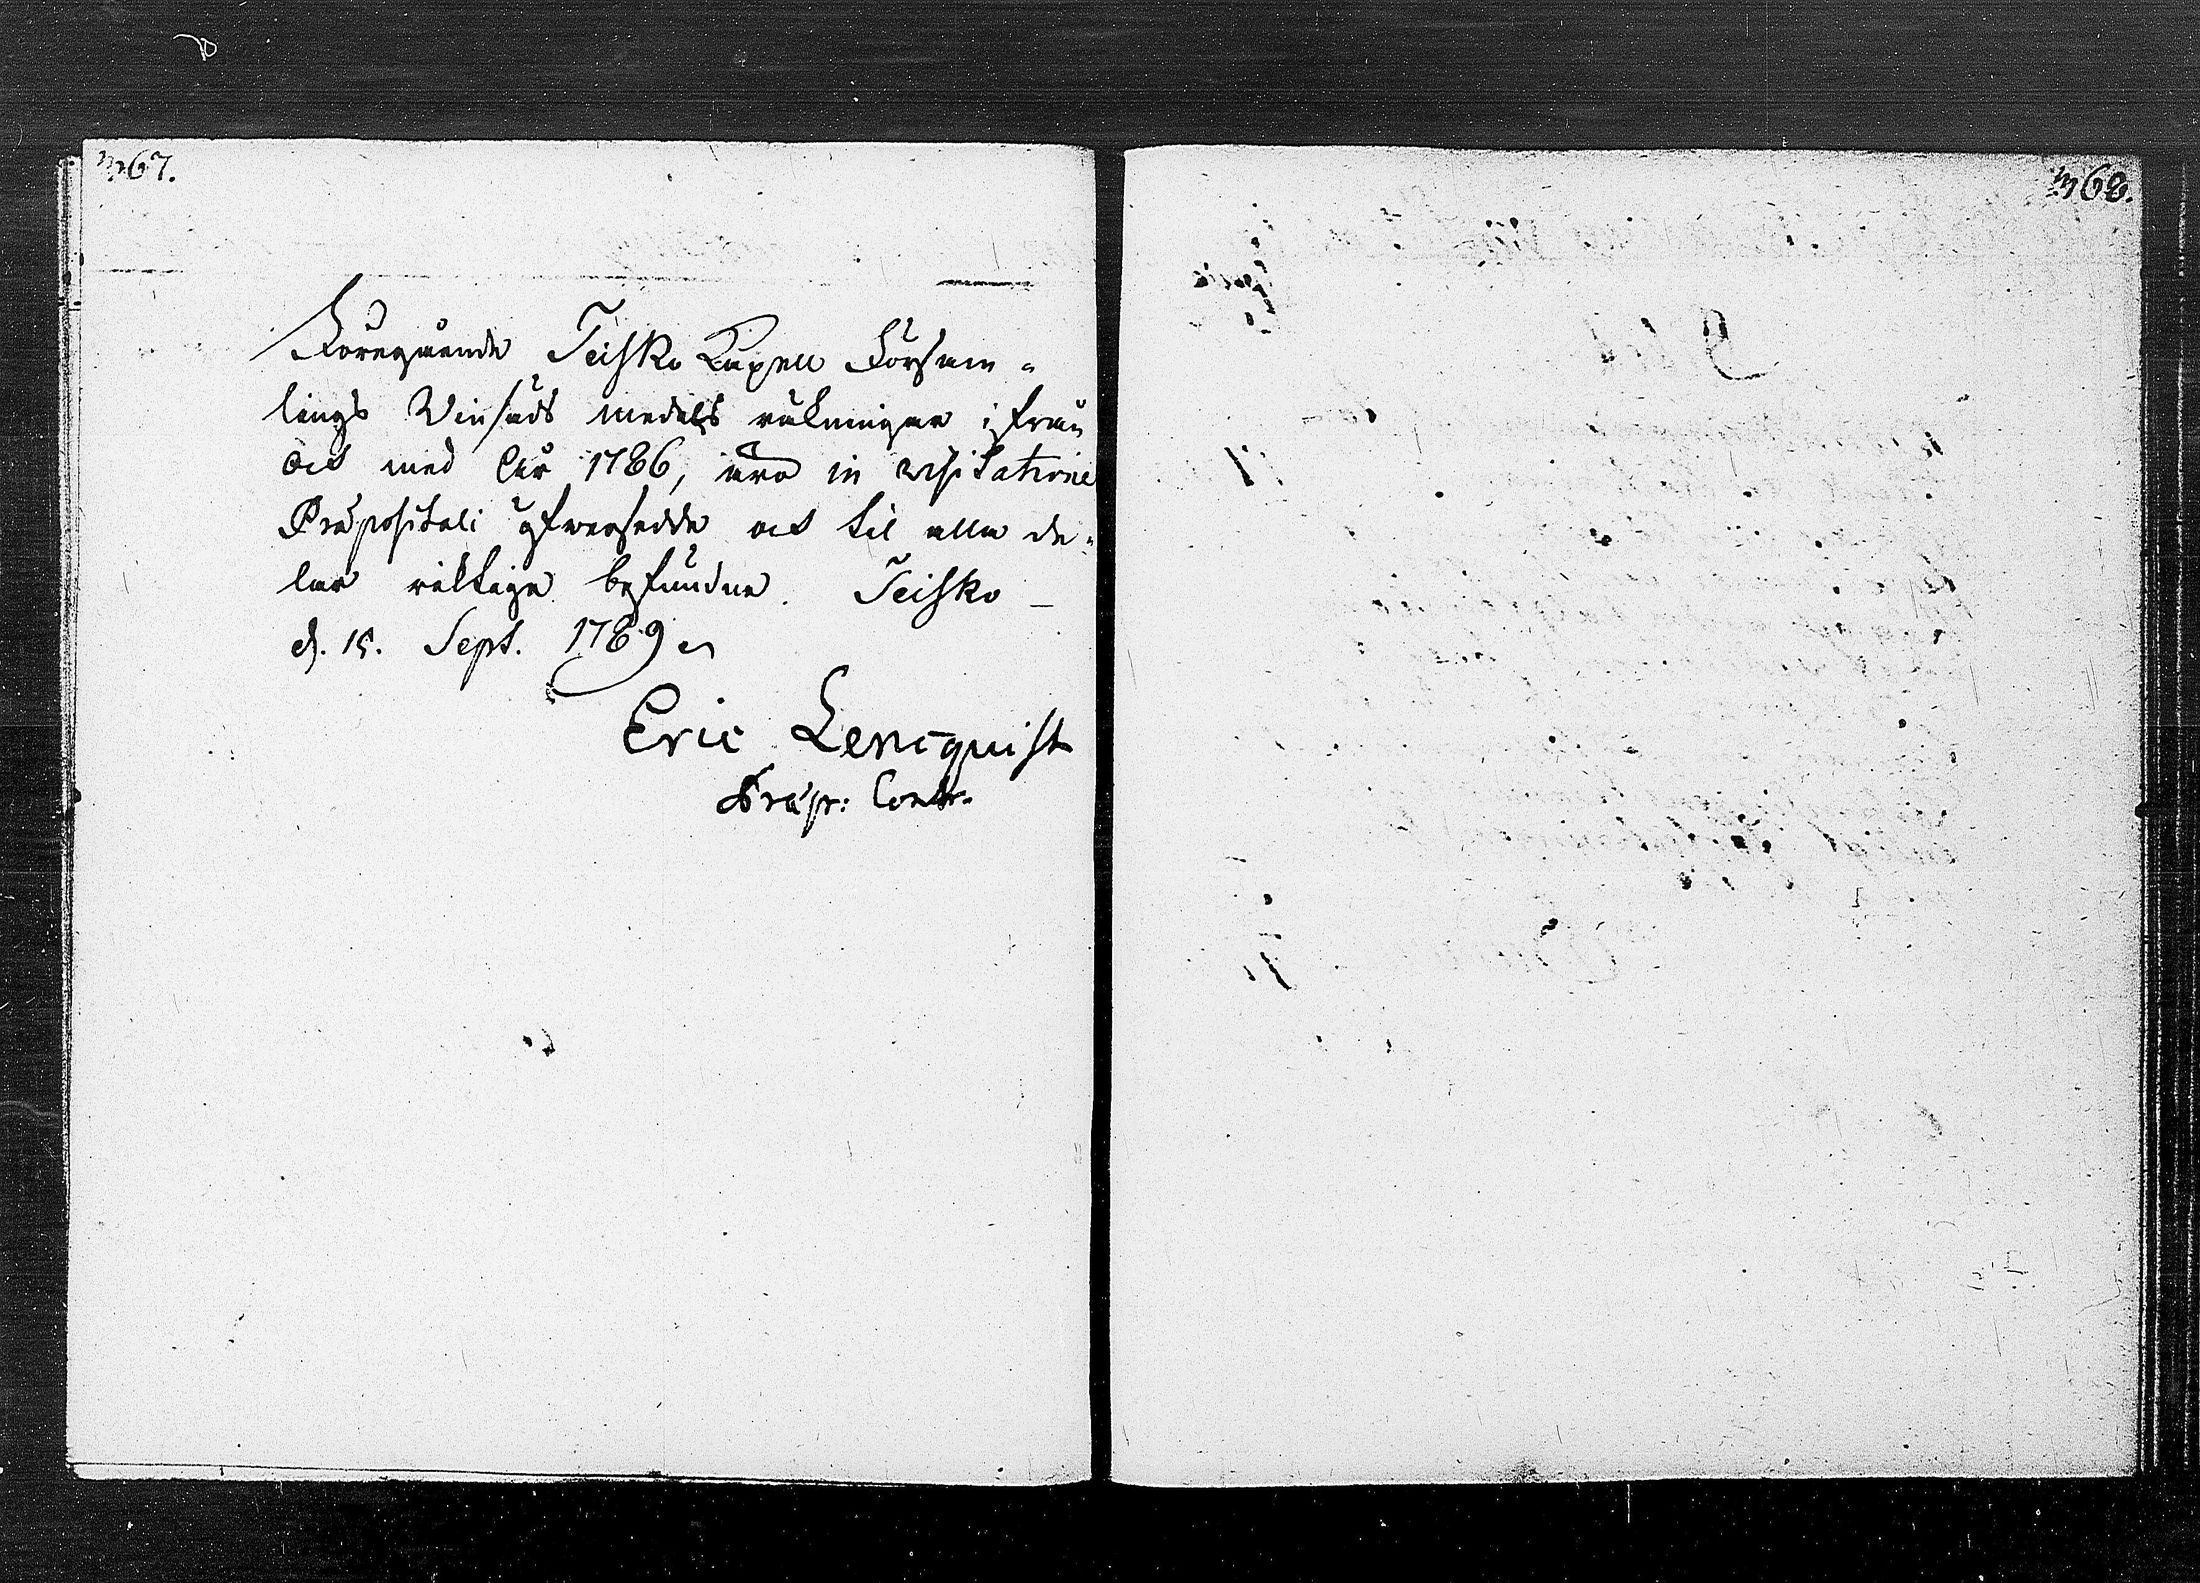 367.
Föregående Teisko Capell Försam=
lings Winsäds medels räkningar ifrån
och med År 1786, äro in visitatione
Præpositali öfwersedde och til alla de=
lar riktige befundne. Teisko
d. 15. Sept. 1789
Eric Lencquist
Præp: Contr.
368.